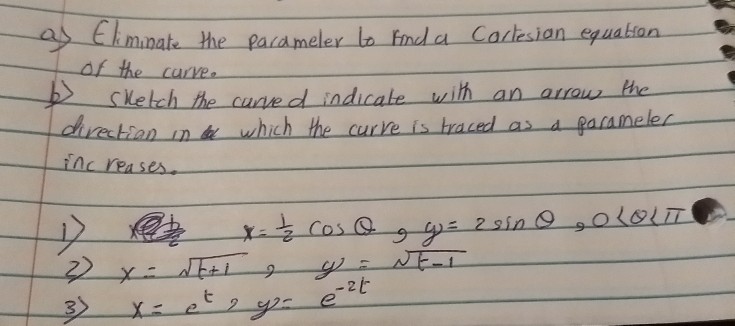 a) Eliminate the parameter to find a Cartesian equation
of the curve.
b) Sketch the curve d indicate with an arrow the
direction in which the curve is traced as a parameter
increases.
1) x = 1/2 cos θ , y = 2 sin θ , 0<θ<π
2) x = √t+1 , y = √t-1
3) x = e^t , y = e^-2t